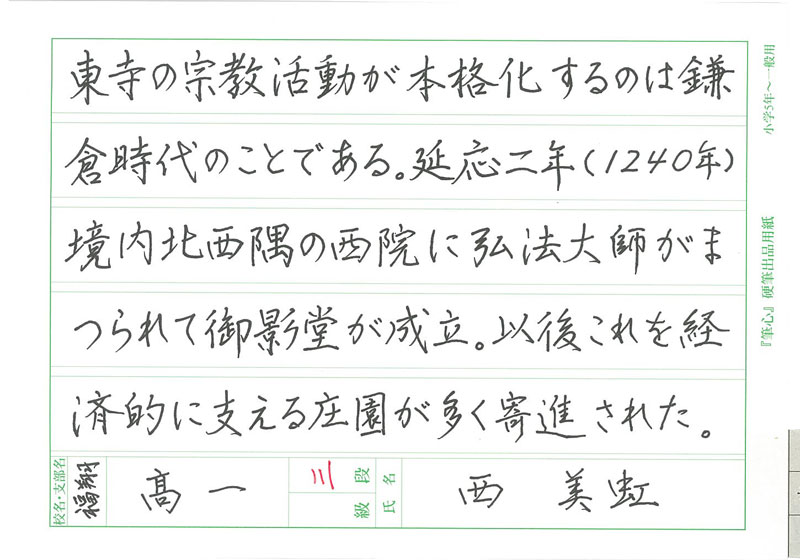 東寺の宗教活動が本格化するのは鎌
倉時代のことである。延応二年(1240年)
境内北西隅の西院に弘法大師がま
つられて御影堂が成立。以後これを経
済的に支える庄園が多く寄進された。
校名・支部名 福翔 高一 三 段 級 氏名 西 美虹
小学5年～一般用
『筆心』硬筆出品用紙